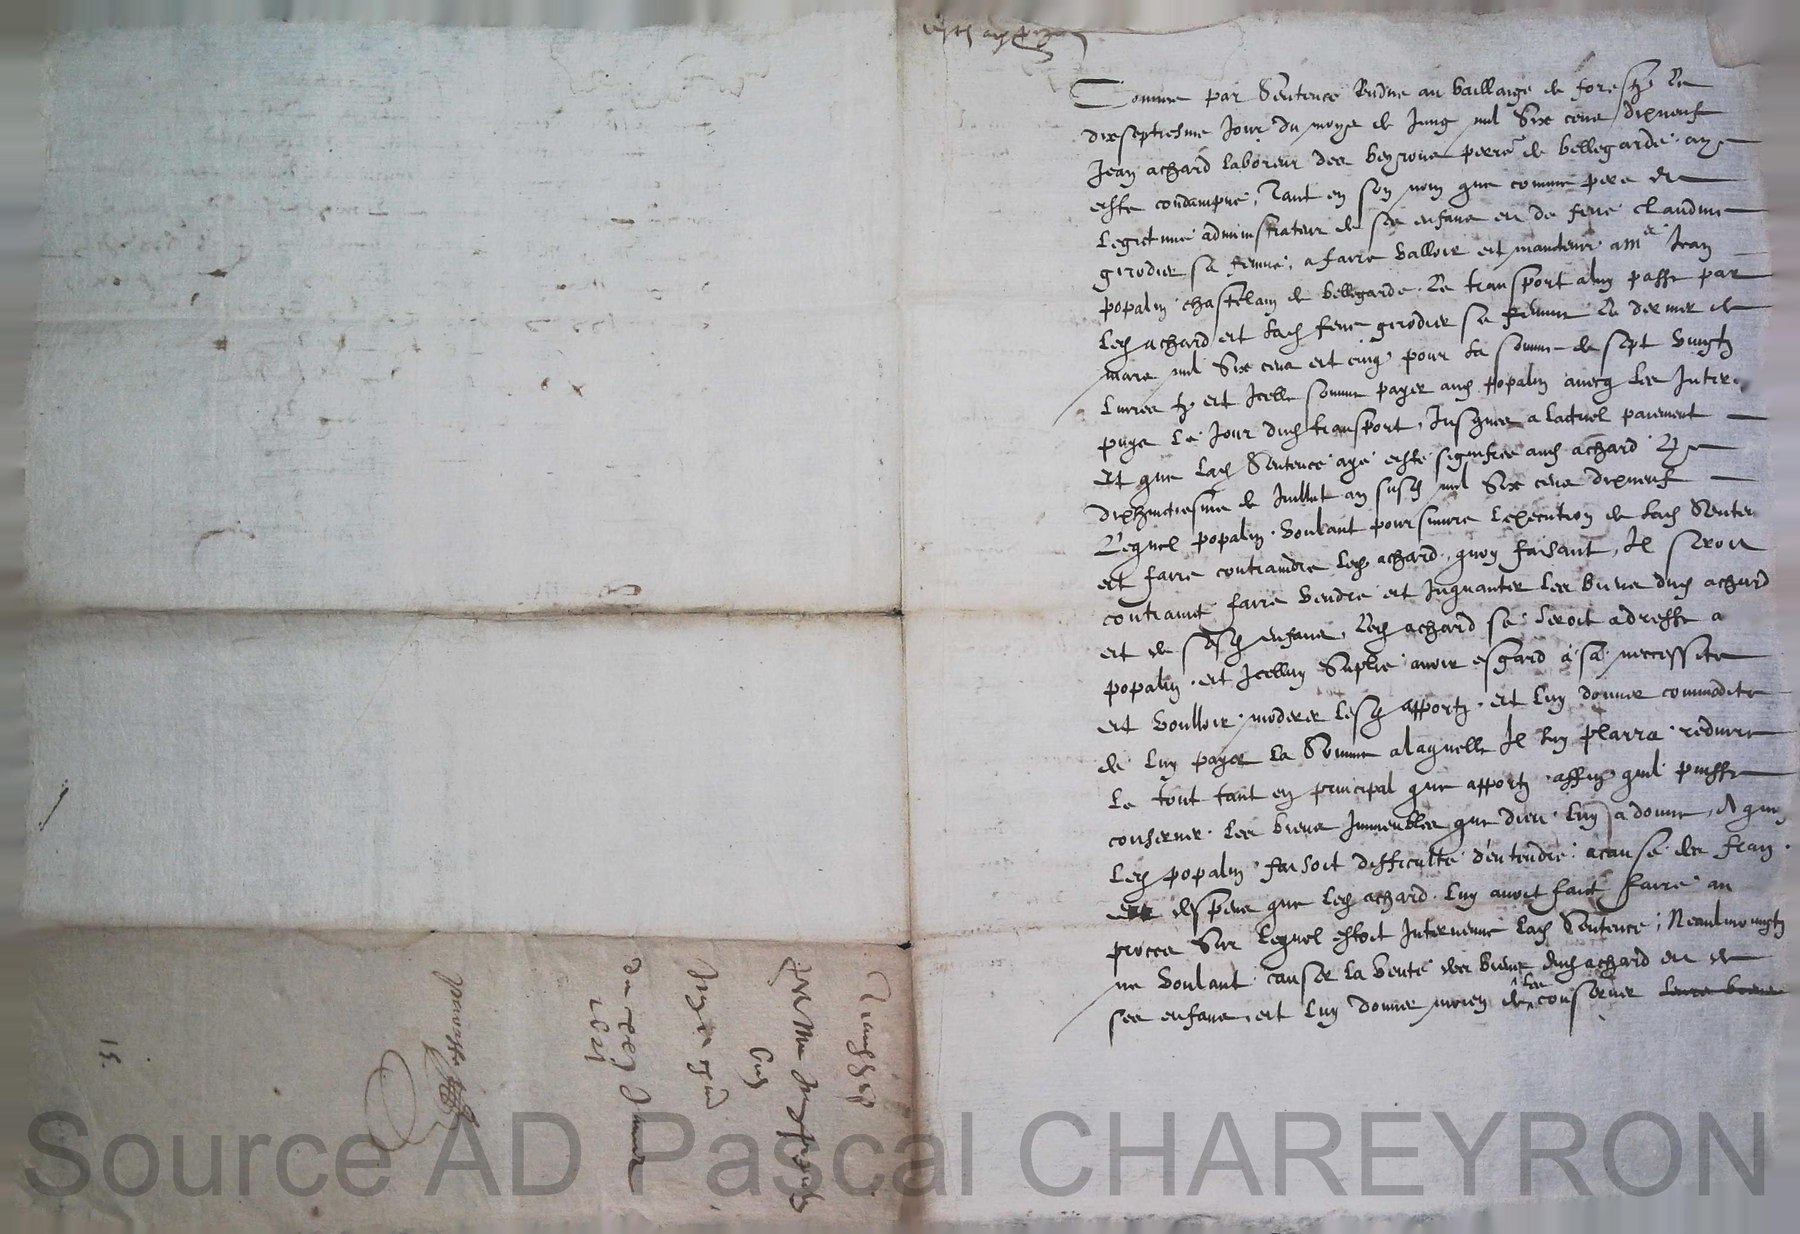 Comme par Sentence Rendue au bailliaige de forestz Le
dixseptiesme Jour du moys de Jung mil Six cens dixneuf
Jean achard laboreur des beyrons perre de bellegarde aye
este condampné, Tant en son nom que comme pere et
Legitime administrateur de ses enfans et de feue Claudine
girodier sa femme, a faire valloir et maintenir a Me Jean
popalin chastelain de bellegarde Le transport a luy passé par
Led achard et lad feue girodier sa femme Le dernier de
mars mil Six cens et cinq pour la somme de sept vingtz
Livres tz et Icelle somme payer aud popalin avecq les Inter
puys Le Jour dud transport, Jusques a lactuel paiement
Et que lad Sentence aye esté signifiée aud achard Le
dixhuictiesme de Juillet an susd mil Six cens dixneuf
Lequel popalin voulant poursuivre L'execution de lad Senten
et faire contraindre led achard, quoy faisant, Il seroit
contrainct faire vendre et Inquanter les biens dud achard
et de sesd enfans, Led achard se seroit adressé a
popalin et Icelluy Suplié avoir esgard a sa neccessité
et voulloir moderer lesd apportz et luy donner commodité
de luy payer la Somme a laquelle Il luy plairra reduire
Le tout tant en principal que apportz affin quil puisse
conserver les biens Immeubles que dieu luy a donné, A quoy
Led popalin faisoit difficulté d'entendre a cause des fraiz
et despens que led achard luy avoit faict faire au
proces Sur Lequel estoit Intervenue lad Sentence, Neaulmoingtz
ne voulant causer la vente des biens dud achard et de
ses enfans, et luy donner moien de les conserver leurs biens
1621
15.
Source AD Pascal CHAREYRON